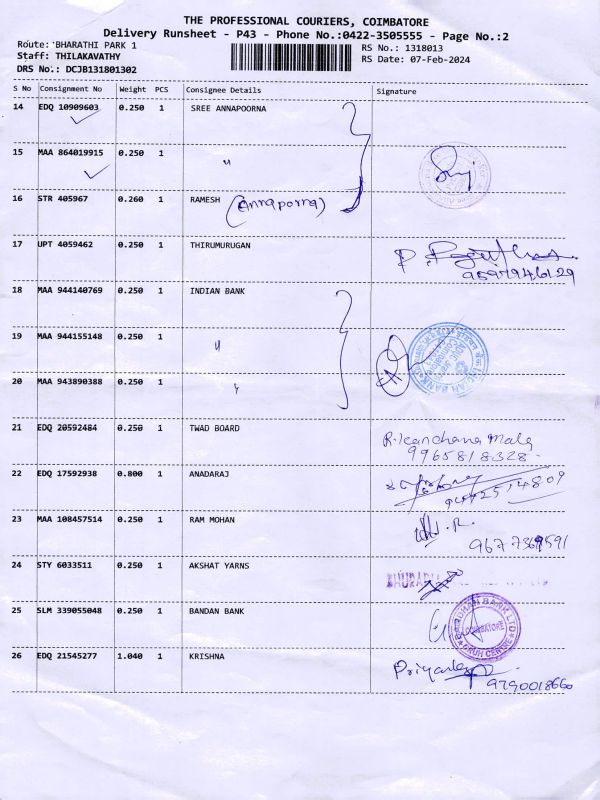 THE PROFESSIONAL COURIERS, COIMBATORE
Delivery Runsheet - P43 - Phone No.:0422-3505555 - Page No.:2
Route: BHARATHI PARK 1 RS No.: 1318013
Staff: THILAKAVATHY RS Date: 07-Feb-2024
DRS No.: DCJB131801302
S No Consignment No Weight PCS Consignee Details Signature
14 EDQ 10909603 0.250 1 SREE ANNAPOORNA
15 MAA 864019915 0.250 1 "
16 STR 405967 0.260 1 RAMESH (Annaporna)
17 UPT 4059462 0.250 1 THIRUMURUGAN
9597946129
18 MAA 944140769 0.250 1 INDIAN BANK
19 MAA 944155148 0.250 1 "
20 MAA 943890388 0.250 1 "
21 EDQ 20592484 0.250 1 TWAD BOARD R. Kanchana Mala
9965818328
22 EDQ 17592938 0.800 1 ANADARAJ
9442514809
23 MAA 108457514 0.250 1 RAM MOHAN
24 STY 6033511 0.250 1 AKSHAT YARNS
25 SLM 339055048 0.250 1 BANDAN BANK BANDHAN BANK LTD
COIMBATORE
26 EDQ 21545277 1.040 1 KRISHNA
9790018660